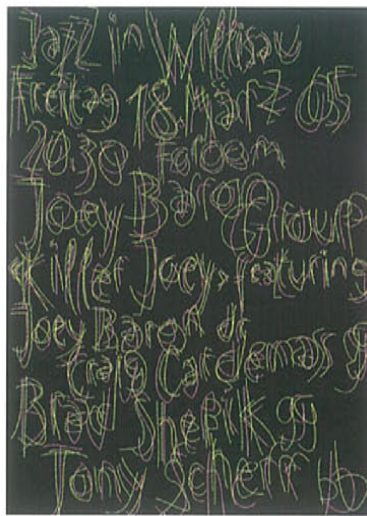 Jazz in Willisau
Freitag 18. März 05
20.30 Foroom
Joey Baron Group
«Killer Joey» featuring
Joey Baron dr
Craig Cardiemass g
Brad Shepik g
Tony Scherr b